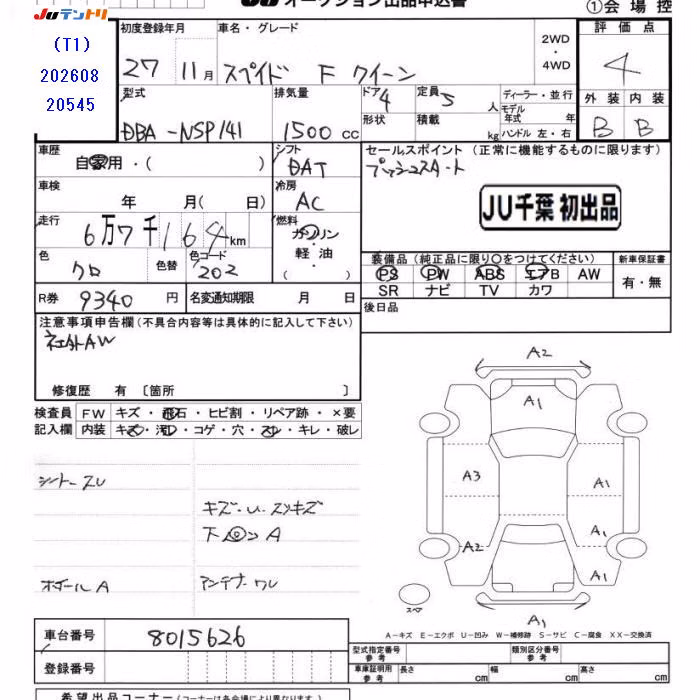 JUテントリ
(T1)
202608
20545
JU オークション出品申込書
①会場控
初度登録年月 車名・グレード 2WD・4WD 評価点
27 11月 スペイド F クイーン 4
型式 排気量 ドア 4 定員 5人 ディーラー・並行 外装 内装
DBA-NSP141 1500cc 形状 積載 kg モデル年式 年 ハンドル 左・右 B B
車歴 シフト セールスポイント (正常に機能するものに限ります)
自家用・( ) DAT プッシュスタート
車検 年 月( 日) 冷房 AC
JU千葉 初出品
走行 6万7千164km 燃料 ガソリン・軽油・
色 クロ 色替 色コード 202
装備品(純正品に限り○をつけてください) 新車保証書
PS PW ABS エアB AW 有・無
SR ナビ TV カワ
R券 9340円 名変通知期限 月 日 後日品
注意事項申告欄(不具合内容等は具体的に記入して下さい)
社外AW
修復歴 有 〔箇所 〕
検査員 FW キズ・飛石・ヒビ割・リペア跡・×要
記入欄 内装 キズ・汚レ・コゲ・穴・スレ・キレ・破レ
シートスレ
キズ・U・スリキズ
下回ンA
ホイールA アンテナ・ワレ
A2
A1
A3 A1
A1
A2 A1
スペア
A1
A-キズ E-エクボ U-凹み W-補修跡 S-サビ C-腐食 XX-交換済
車台番号 8015626
登録番号
型式指定番号 参考 類別区分番号 参考
車庫証明用 参考 長さ cm 幅 cm 高さ cm
希望出品コーナー(コーナーは各会場により異なります。)